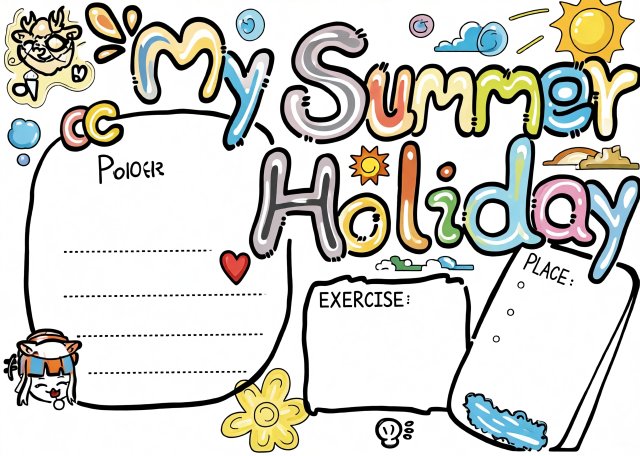 My Summer
Holiday
CC
EXERCISE:
PLACE: